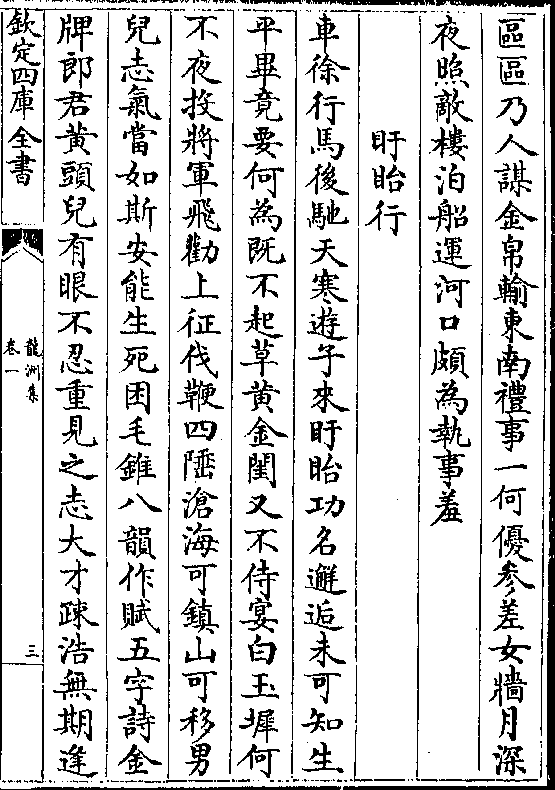 區區乃人謀金帛輸東南禮事一何優參差女牆月深
夜照敵樓泊船運河口頗為執事羞
盱眙行
車徐行馬後馳天寒遊子來盱眙功名邂逅未可知生
平畢竟要何為既不起草黃金閨又不侍宴白玉墀何
不夜投將軍飛勸上征伐鞭四陲滄海可鎮山可移男
兒志氣當如斯安能生死困毛錐八韻作賦五字詩金
牌郎君黃頭兒有眼不忍重見之志大才疎浩無期逢
欽定四庫全書
龍洲集
卷一
三